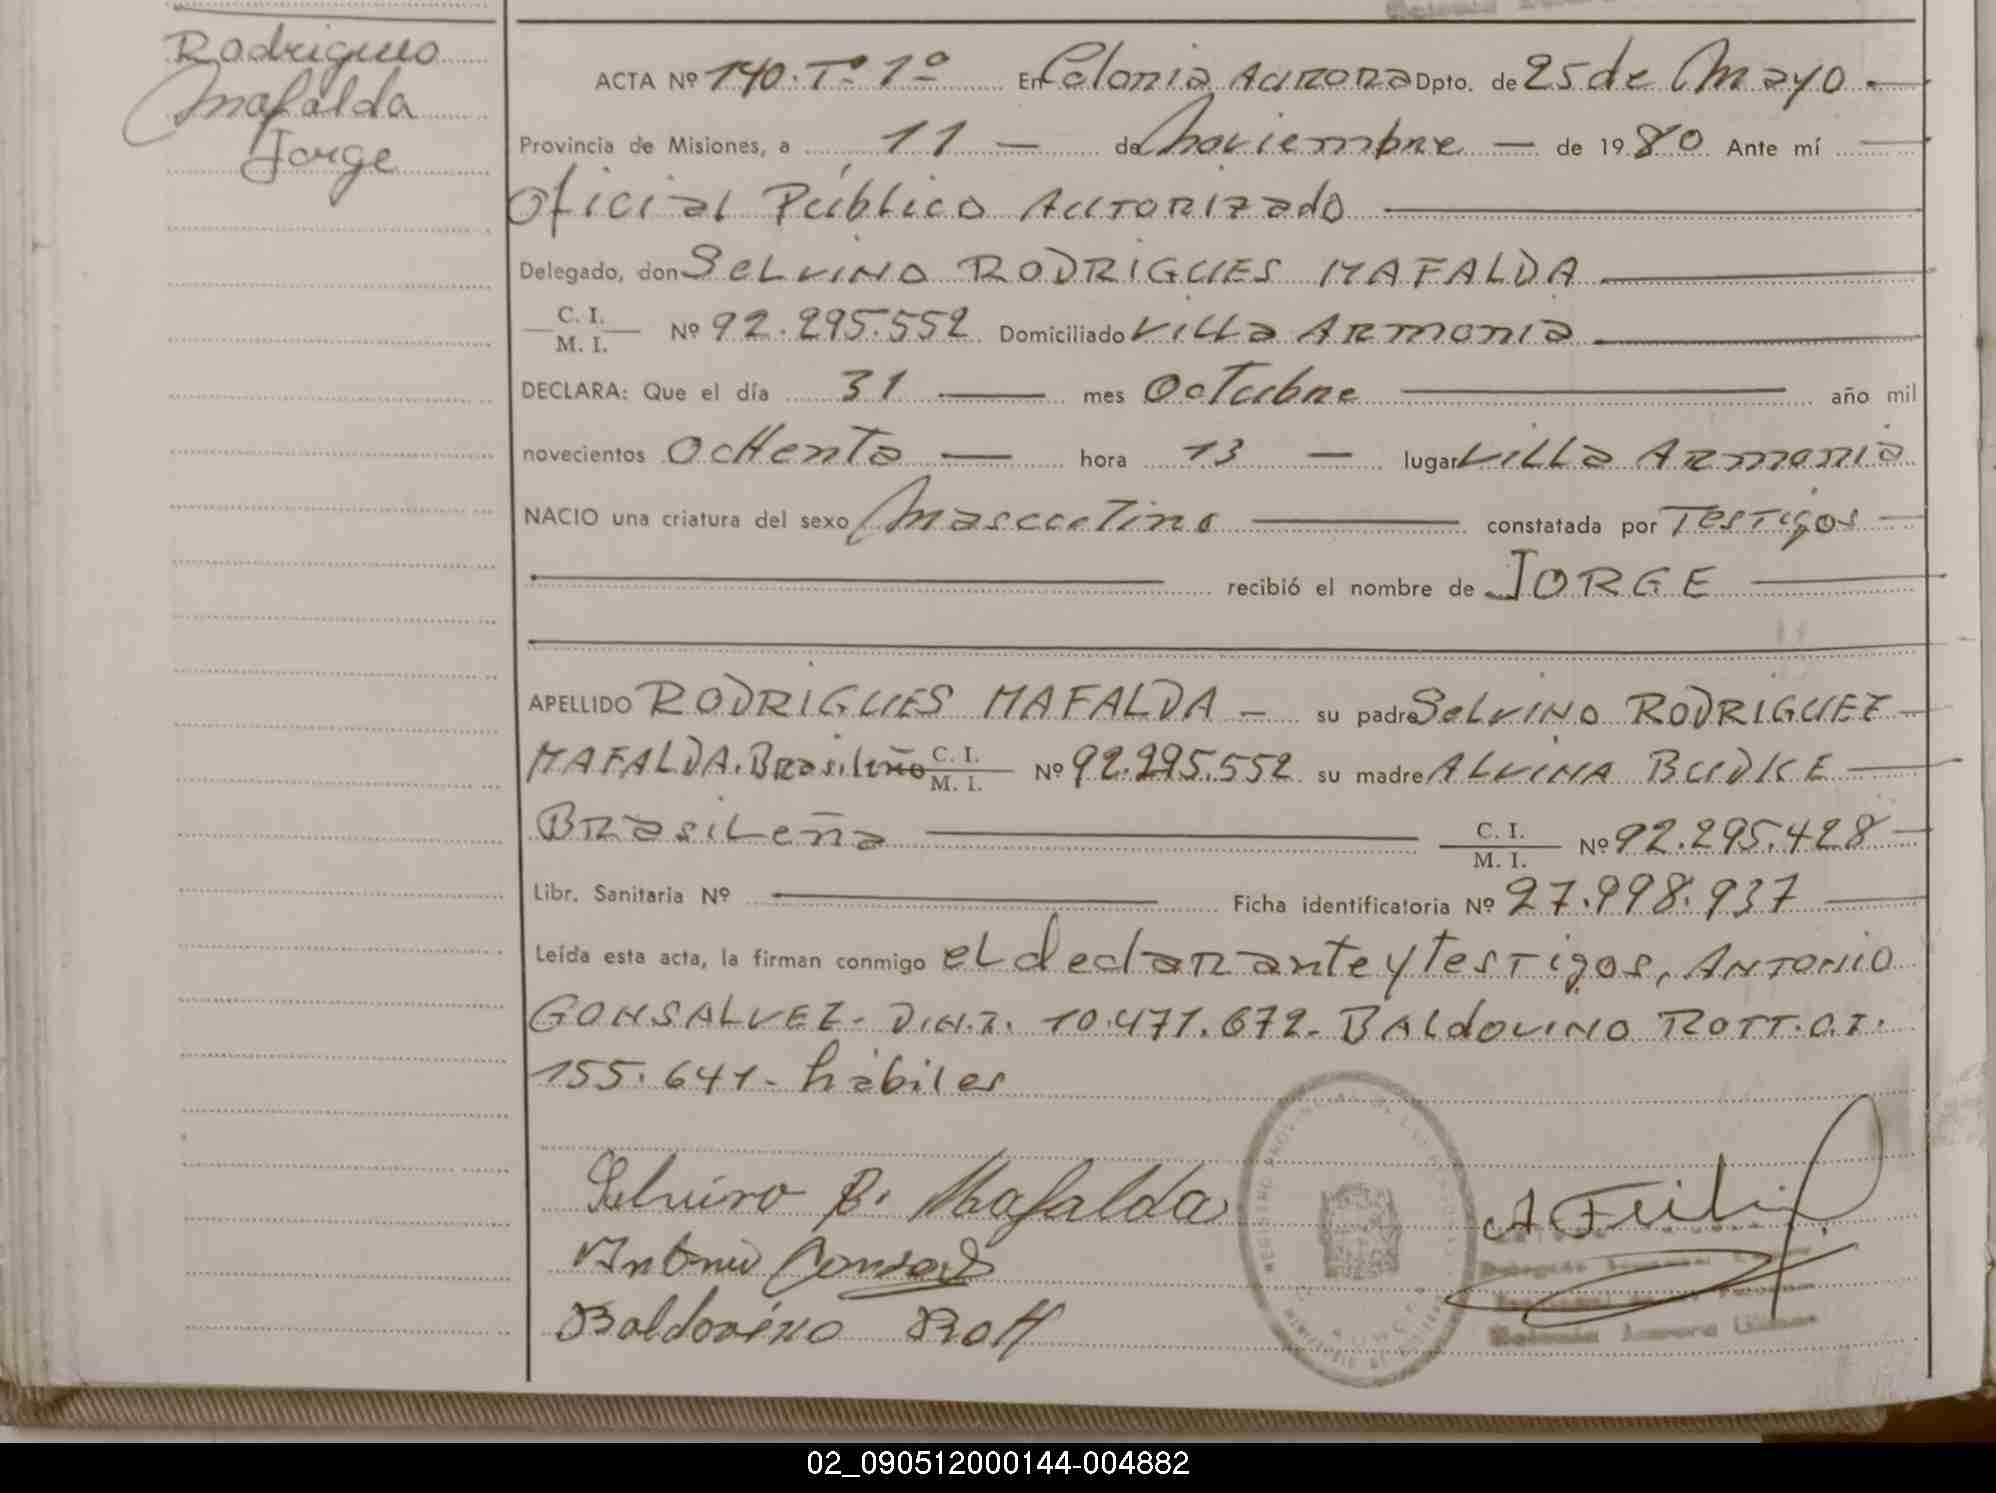 Rodrigues
Mafalda
Jorge
ACTA Nº 140. Tº 1º En Colonia Aurora Dpto. de 25 de Mayo.
Provincia de Misiones, a 11 — de Noviembre — de 1980 Ante mí
Oficial Público Autorizado
Delegado, don SELVINO RODRIGUES MAFALDA
C. I.
M. I. Nº 92.295.552 Domiciliado Villa Armonia
DECLARA: Que el día 31 — mes Octubre — año mil
novecientos Ochenta — hora 13 — lugar Villa Armonia
NACIO una criatura del sexo Masculino — constatada por Testigos —
recibió el nombre de JORGE
APELLIDO RODRIGUES MAFALDA — su padre SELVINO RODRIGUEZ
MAFALDA. Brasileño C. I. M. I. Nº 92.295.552 su madre ALVINA BUDKE
Brasileña — C. I. M. I. Nº 92.295.428
Libr. Sanitaria Nº — Ficha identificatoria Nº 27.998.937
Leída esta acta, la firman conmigo el declarante y testigos, ANTONIO
GONSALVEZ- D.N.I. 10.471.672- BALDOVINO ROTT. C.I.
155.641- hábiles
Selvino R. Mafalda
Antonio
Baldovino Rott
02_090512000144-004882